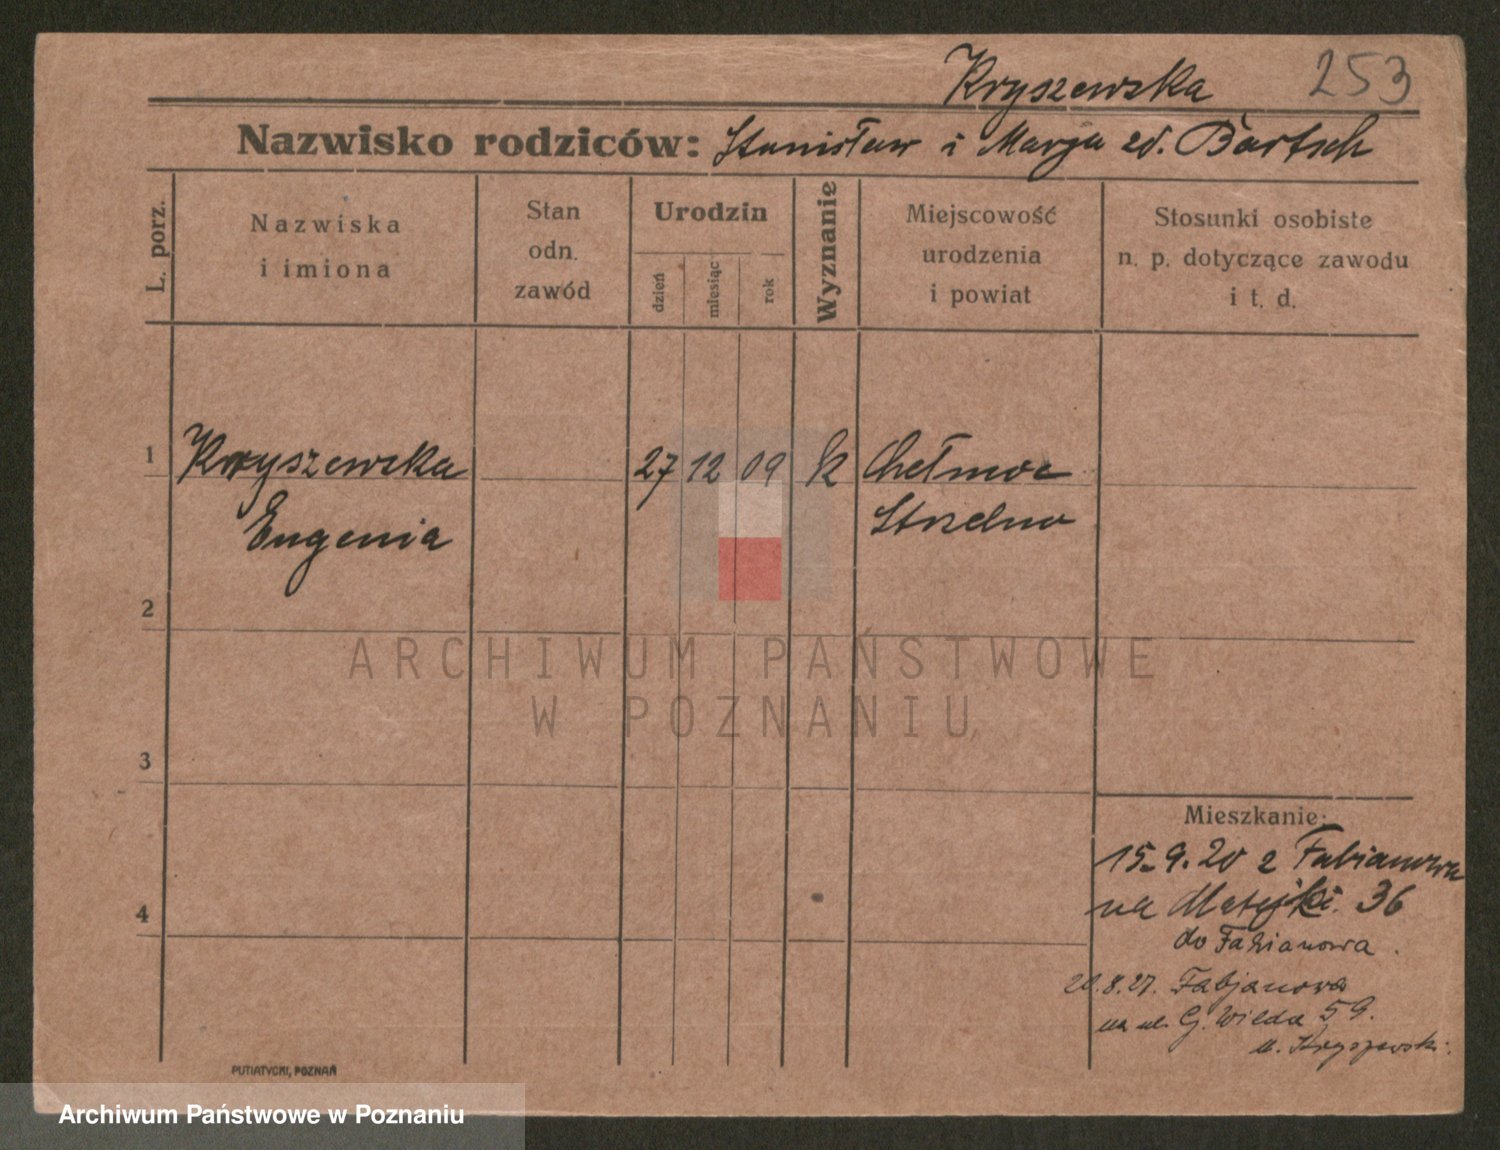 Kryszewska 253
Nazwisko rodziców: Stanisław i Marja zd. Bartsch
L. porz.
Nazwiska
i imiona
Stan
odn.
zawód
Urodzin
dzień
miesiąc
rok
Wyznanie
Miejscowość
urodzenia
i powiat
Stosunki osobiste
n. p. dotyczące zawodu
i t. d.
1 Kryszewska 27 12 09 k Chełmce
Eugenia Strzelno
2
3
4
Mieszkanie:
15.9.20 z Fabianowa
na Matejki 36
do Fabianowa.
20.8.27. Fabjanowa
na ul. G. Wilda 59.
u. Kryszewski.
PUTIATYCKI, POZNAŃ
ARCHIWUM PAŃSTWOWE
W POZNANIU
Archiwum Państwowe w Poznaniu